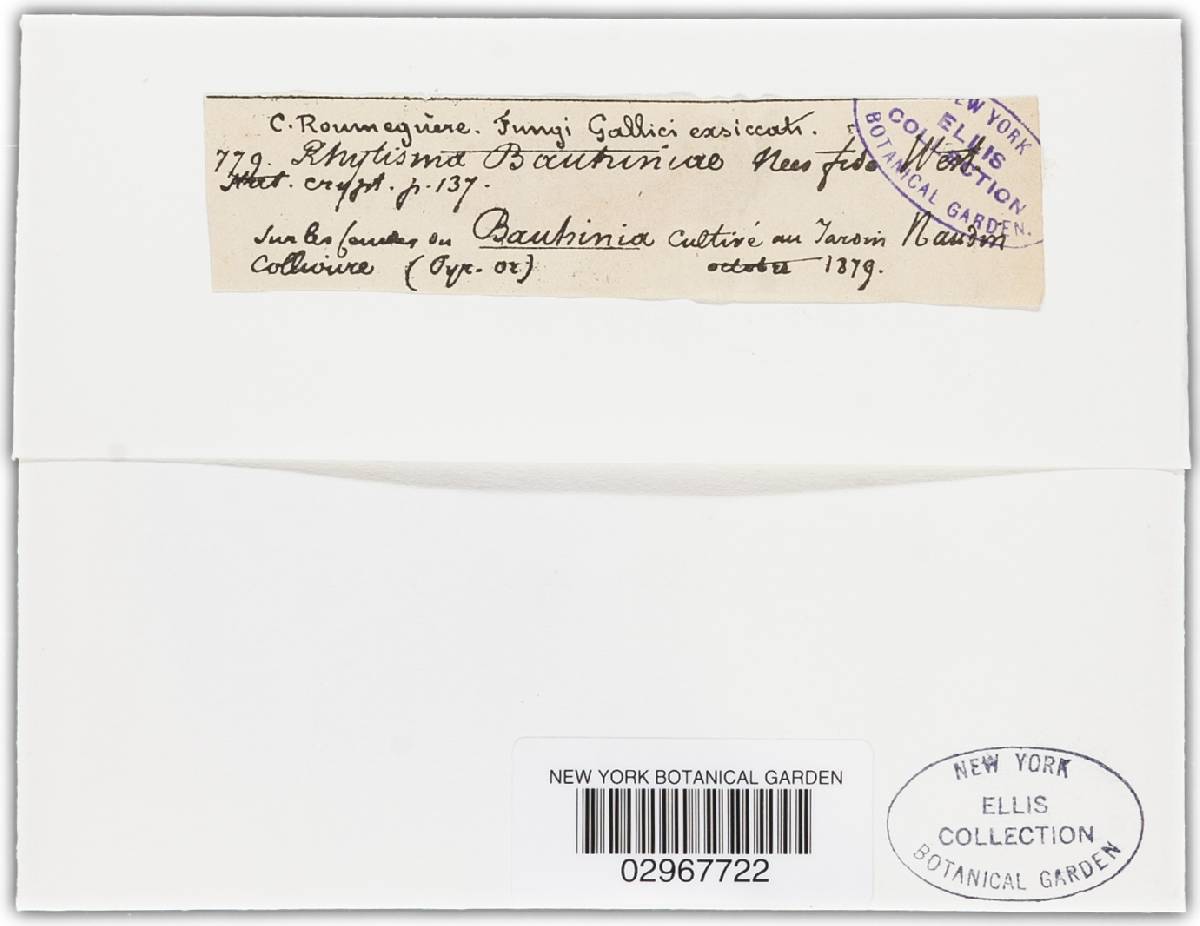 C. Roumeguère. Fungi Gallici exsiccati.
779. Rhytisma Bauhiniae Nees fide West.
crypt. p. 137.
Sur les feuilles du Bauhinia cultivé au Jardin Naudin
Collioure (Pyr. or.) octobre 1879.
NEW YORK
ELLIS
COLLECTION
BOTANICAL GARDEN.
NEW YORK BOTANICAL GARDEN
02967722
NEW YORK
ELLIS
COLLECTION
BOTANICAL GARDEN